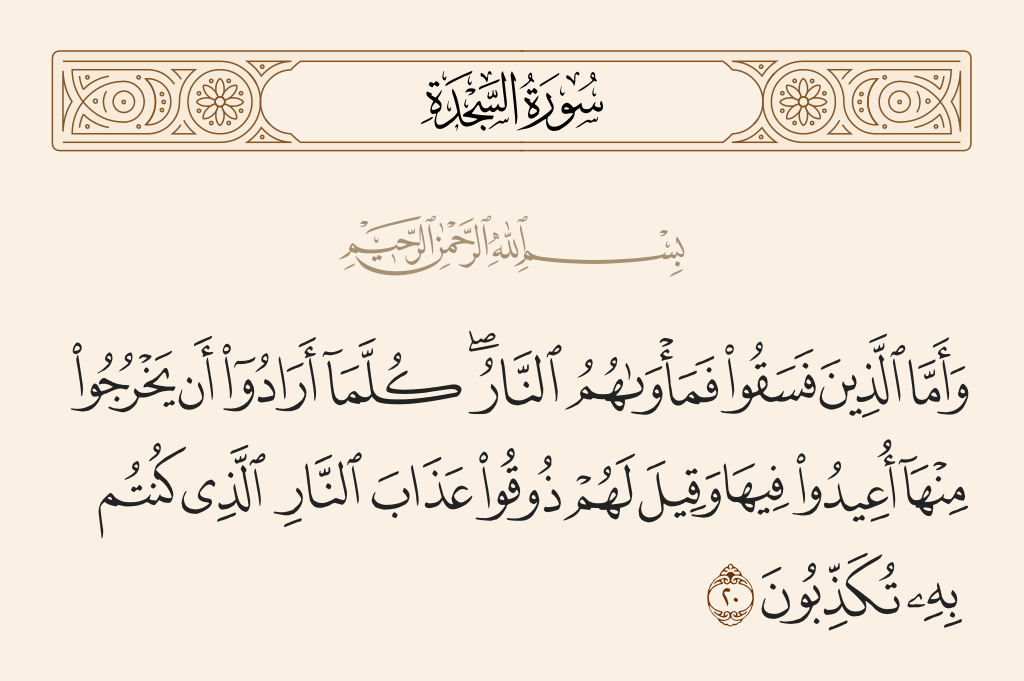 سُورَةُ السَّجْدَة
بِسْمِ ٱللَّهِ ٱلرَّحْمَٰنِ ٱلرَّحِيمِ
وَأَمَّا ٱلَّذِينَ فَسَقُوا۟ فَمَأْوَىٰهُمُ ٱلنَّارُ ۖ كُلَّمَآ أَرَادُوٓا۟ أَن يَخْرُجُوا۟
مِنْهَآ أُعِيدُوا۟ فِيهَا وَقِيلَ لَهُمْ ذُوقُوا۟ عَذَابَ ٱلنَّارِ ٱلَّذِى كُنتُم
بِهِۦ تُكَذِّبُونَ ٢٠